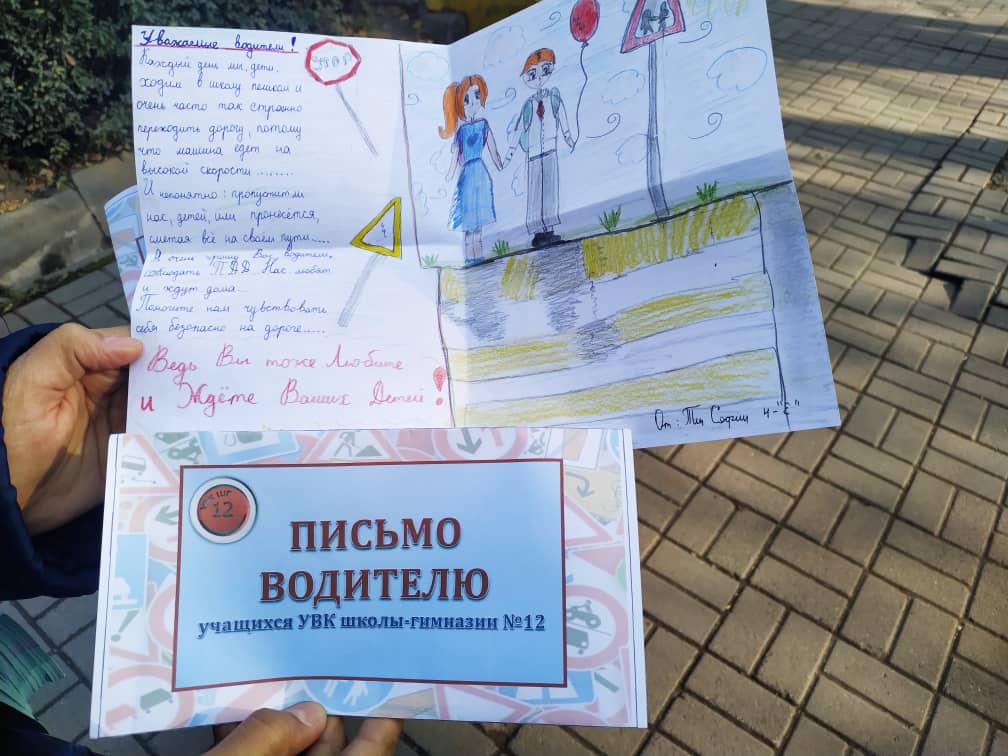 Уважаемые водители!
Каждый день мы, дети,
ходим в школу пешком и
очень часто так страшно
переходить дорогу, потому
что машина едет на
высокой скорости........
И непонятно: пропустит ли
нас, детей, или пронесётся,
сметая всё на своём пути....
Я очень прошу Вас, водители,
соблюдать ПДД. Нас любят
и ждут дома...
Помогите нам чувствовать
себя безопасно на дороге.....
Ведь Вы тоже Любите
и Ждёте Ваших Детей!
От: Тен Софии 4-"Е"
УВК ШГ
12
ПИСЬМО
ВОДИТЕЛЮ
учащихся УВК школы-гимназии №12